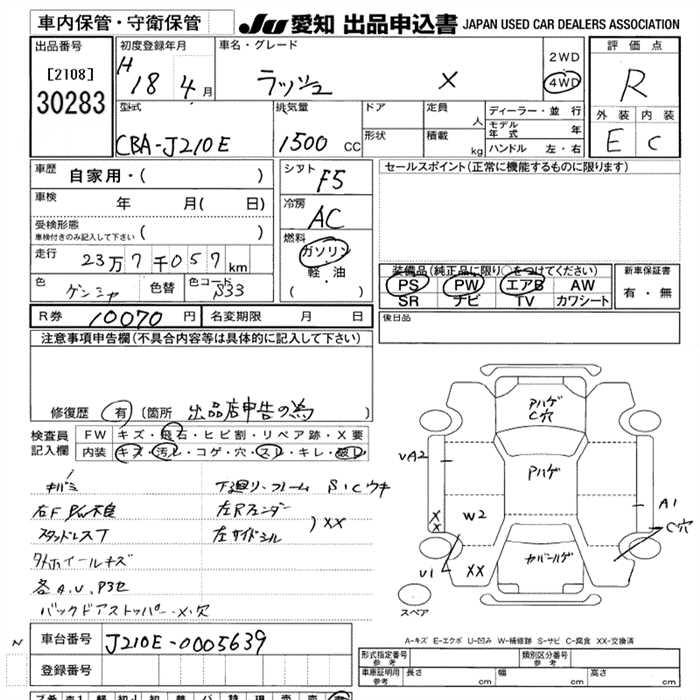 車内保管・守衛保管
JU 愛知 出品申込書 JAPAN USED CAR DEALERS ASSOCIATION
出品番号
[2108]
30283
初度登録年月
H 18 4月
車名・グレード
ラッシュ X
2WD
4WD
評価点
R
外装 内装
E C
型式
CBA-J210E
排気量
1500 CC
ドア
形状
定員 人
積載 kg
ディーラー・並行
モデル年式 年
ハンドル 左・右
車歴
自家用・( )
車検 年 月( 日)
受検形態
車検付きのみ記入して下さい ( )
走行
23万7千057km
色
ゲンシャ
色替
色コード
S33
シフト
F5
冷房
AC
燃料
ガソリン
軽・油
( )
セールスポイント(正常に機能するものに限ります)
装備品(純正品に限り○をつけてください)
PS PW エアB AW
SR ナビ TV カワシート
新車保証書
有・無
R券 10070円
名変期限 月 日
後日品
注意事項申告欄(不具合内容等は具体的に記入して下さい)
修復歴 有 [箇所 出品店申告の為 ]
検査員
記入欄
FW キズ・飛石・ヒビ割・リペア跡・X要
内装 キズ・汚れ・コゲ・穴・スレ・キレ・破れ
キバミ
右F PW不良
スタッドレスT
外ホイールキズ
各A.U.P3セ
バックドアストッパー X・欠
下廻り・フレーム S1Cウキ
左Rフェンダー
左サイドシル
)XX
アハゲ
C穴
Aハゲ
カバーハゲ
UA2
W2
X
X
U1
XX
A1
C穴
スペア
A-キズ E-エクボ U-凹み W-補修跡 S-サビ C-腐食 XX-交換済
車台番号 J210E-0005639
登録番号
形式指定番号
参考
類別区分番号
参考
車庫証明用
参考
長さ cm
幅 cm
高さ cm